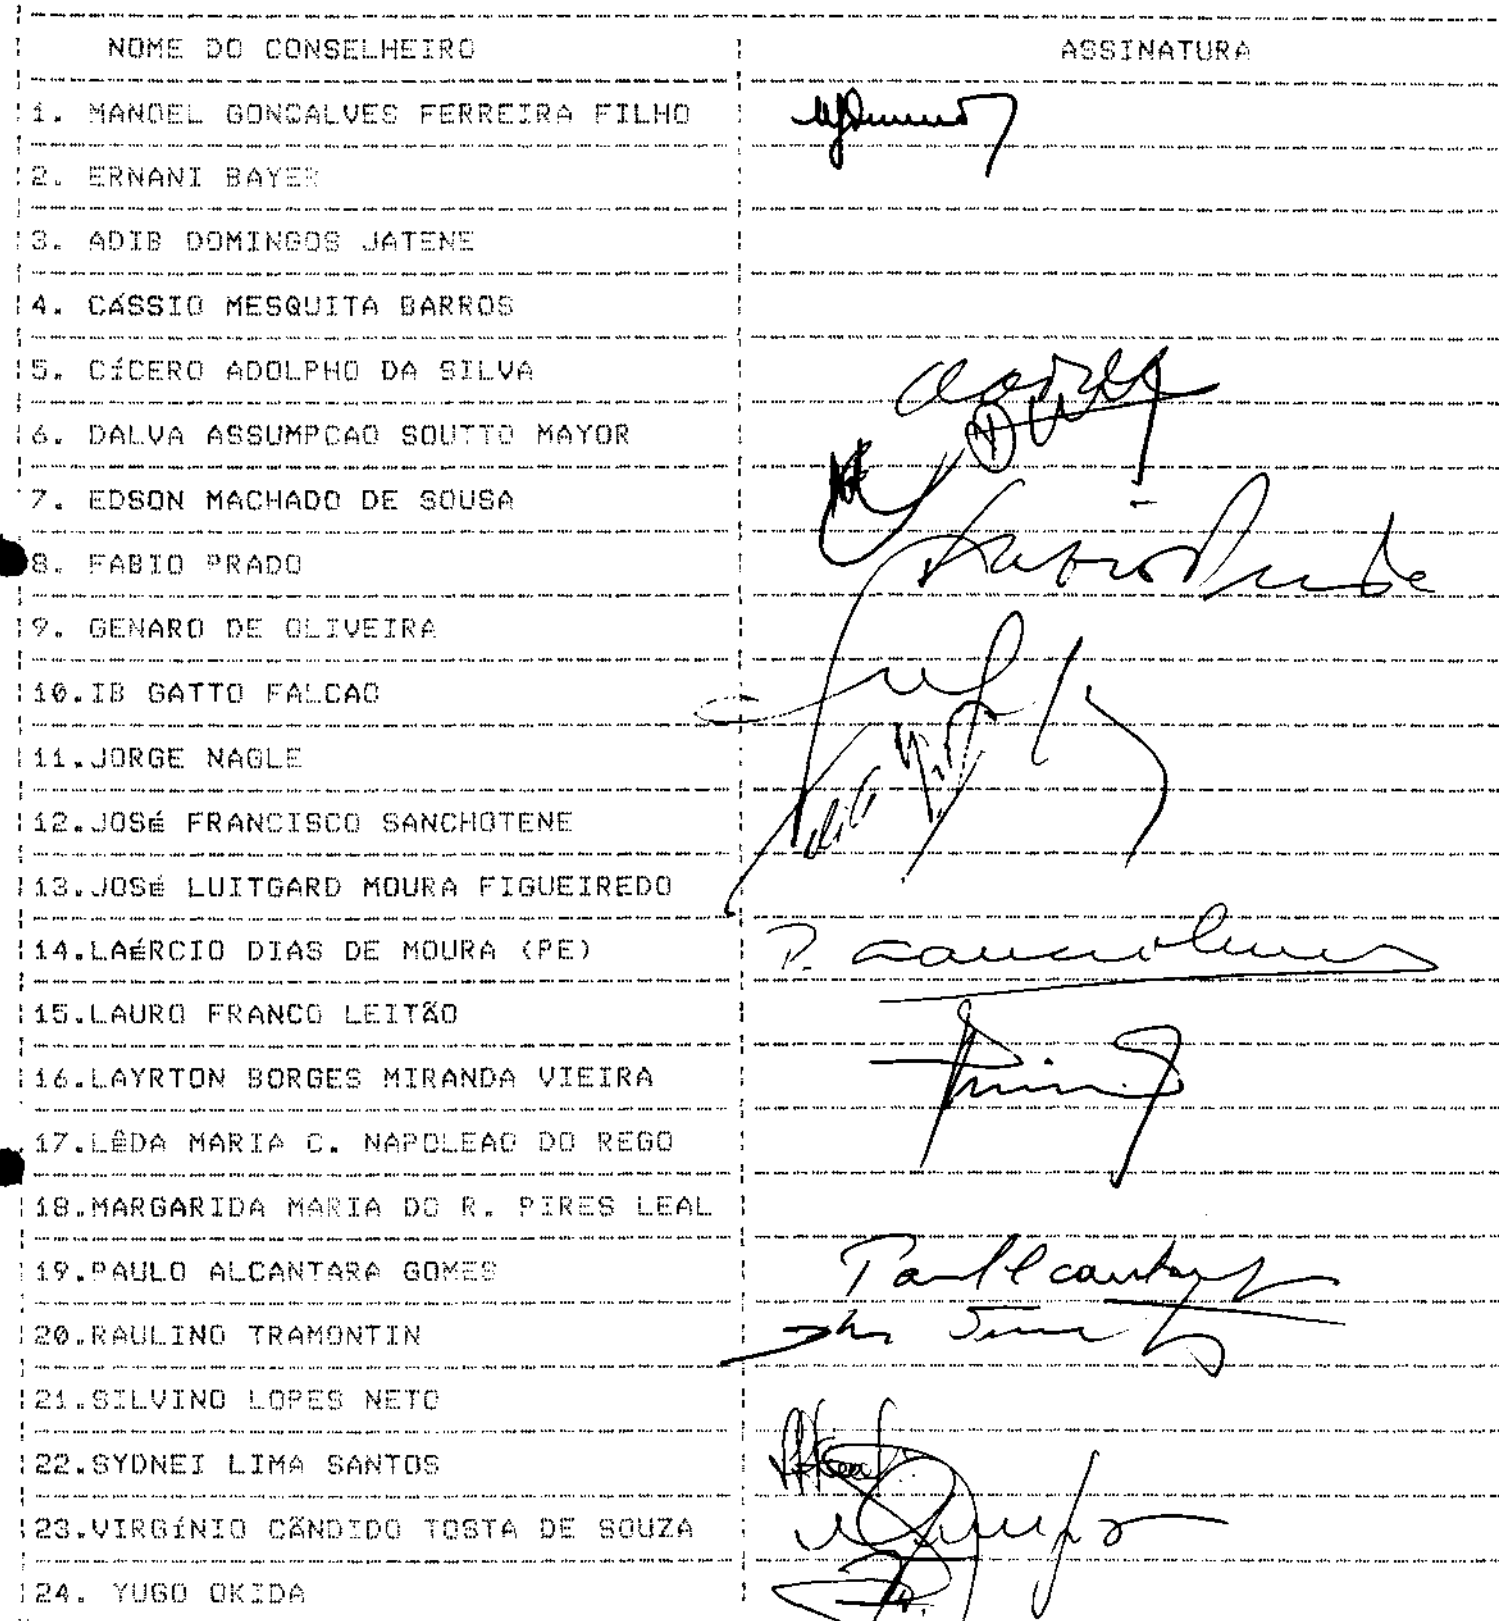 NOME DO CONSELHEIRO ASSINATURA
1. MANOEL GONCALVES FERREIRA FILHO
2. ERNANI BAYER
3. ADIB DOMINGOS JATENE
4. CÁSSIO MESQUITA BARROS
5. CÍCERO ADOLPHO DA SILVA
6. DALVA ASSUMPCAO SOUTTO MAYOR
7. EDSON MACHADO DE SOUSA
8. FABIO PRADO
9. GENARO DE OLIVEIRA
10.IB GATTO FALCAO
11.JORGE NAGLE
12.JOSÉ FRANCISCO SANCHOTENE
13.JOSÉ LUITGARD MOURA FIGUEIREDO
14.LAÉRCIO DIAS DE MOURA (PE) P.
15.LAURO FRANCO LEITÃO
16.LAYRTON BORGES MIRANDA VIEIRA
17.LÊDA MARIA C. NAPOLEAO DO REGO
18.MARGARIDA MARIA DO R. PIRES LEAL
19.PAULO ALCANTARA GOMES
20.RAULINO TRAMONTIN
21.SILVINO LOPES NETO
22.SYDNEI LIMA SANTOS
23.VIRGÍNIO CÂNDIDO TOSTA DE SOUZA
24. YUGO OKIDA